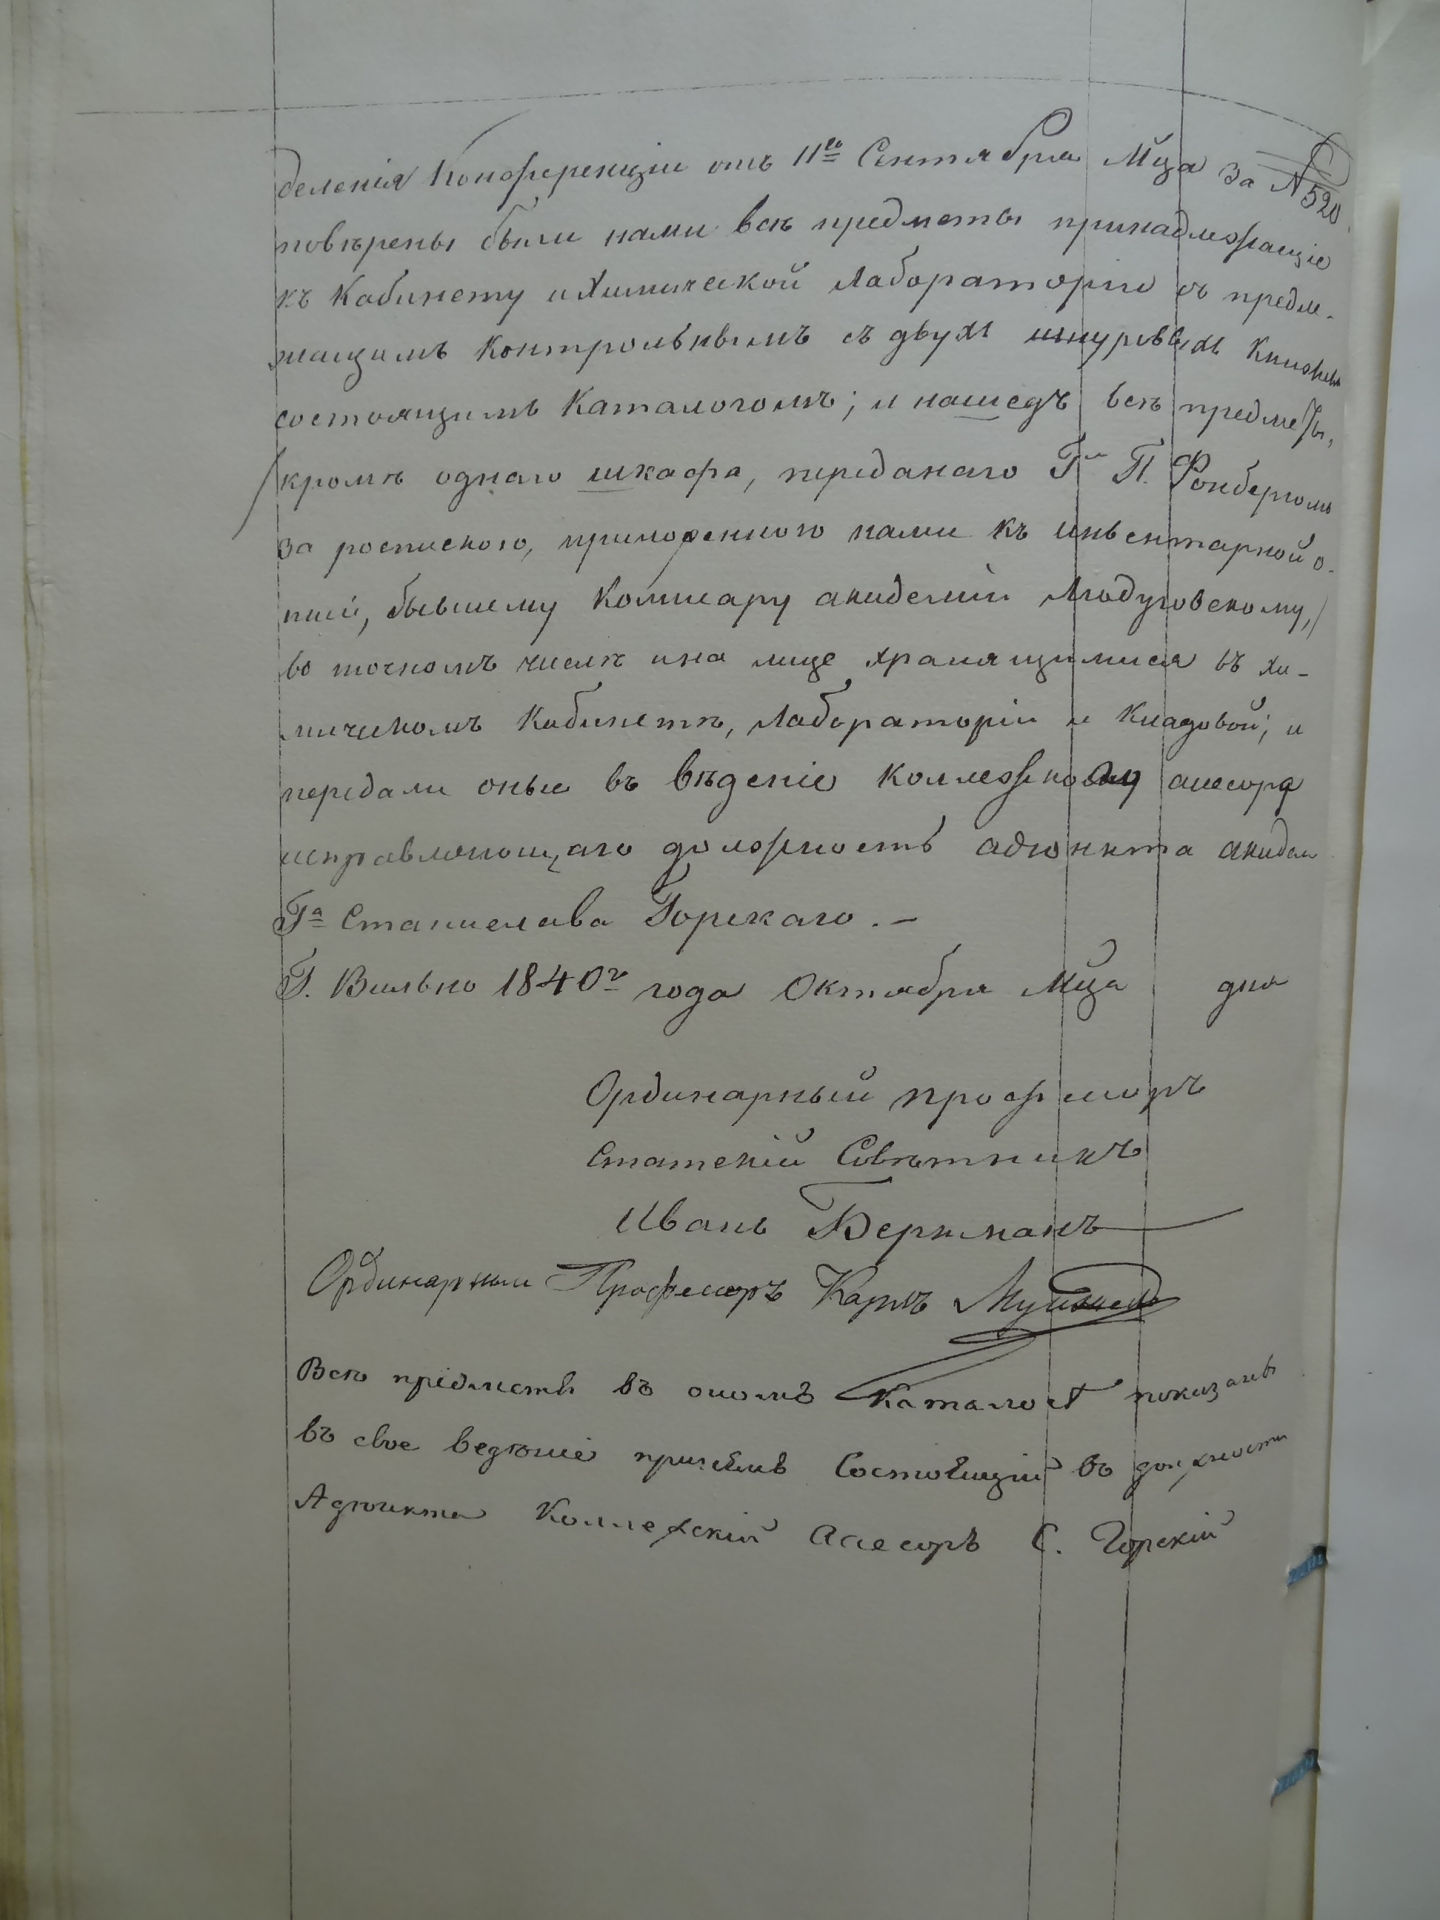 деленія Конференціи отъ 11го Сентября Мца за № 520
повѣрены были нами всѣ предметы принадлежащіе
къ Кабинету и Химической Лабораторіи съ предле-
жащимъ контрольнымъ съ двухъ шнуровыхъ книжекъ
состоящимъ Каталогомъ; и нашедъ всѣ предметы,
кромѣ однаго шкафа, переданаго Гм П. Фонбергомъ
за роспискою, приложенною нами къ инвентарной о-
писи, бывшему Комисару академіи Модзговскому,
во точномъ числѣ и на лице хранящимися въ хи-
мическомъ Кабинетѣ, Лабораторіи и Кладовой; и
передали оные въ вѣденіе Коллежскаго асесора
исправляющаго должность адюнкта академ
Га Станислава Горскаго. –
Г. Вильно 1840го года Октября Мца дня
Ординарный професоръ
Статскій Совѣтникъ
Иванъ Беркманъ
Ординарный Профессоръ Карлъ
Всѣ предметы въ ономъ Каталогѣ показаны
въ свое веденіе принялъ Состоящій въ должности
Адюнкта Коллежскій Асесоръ С. Горскій